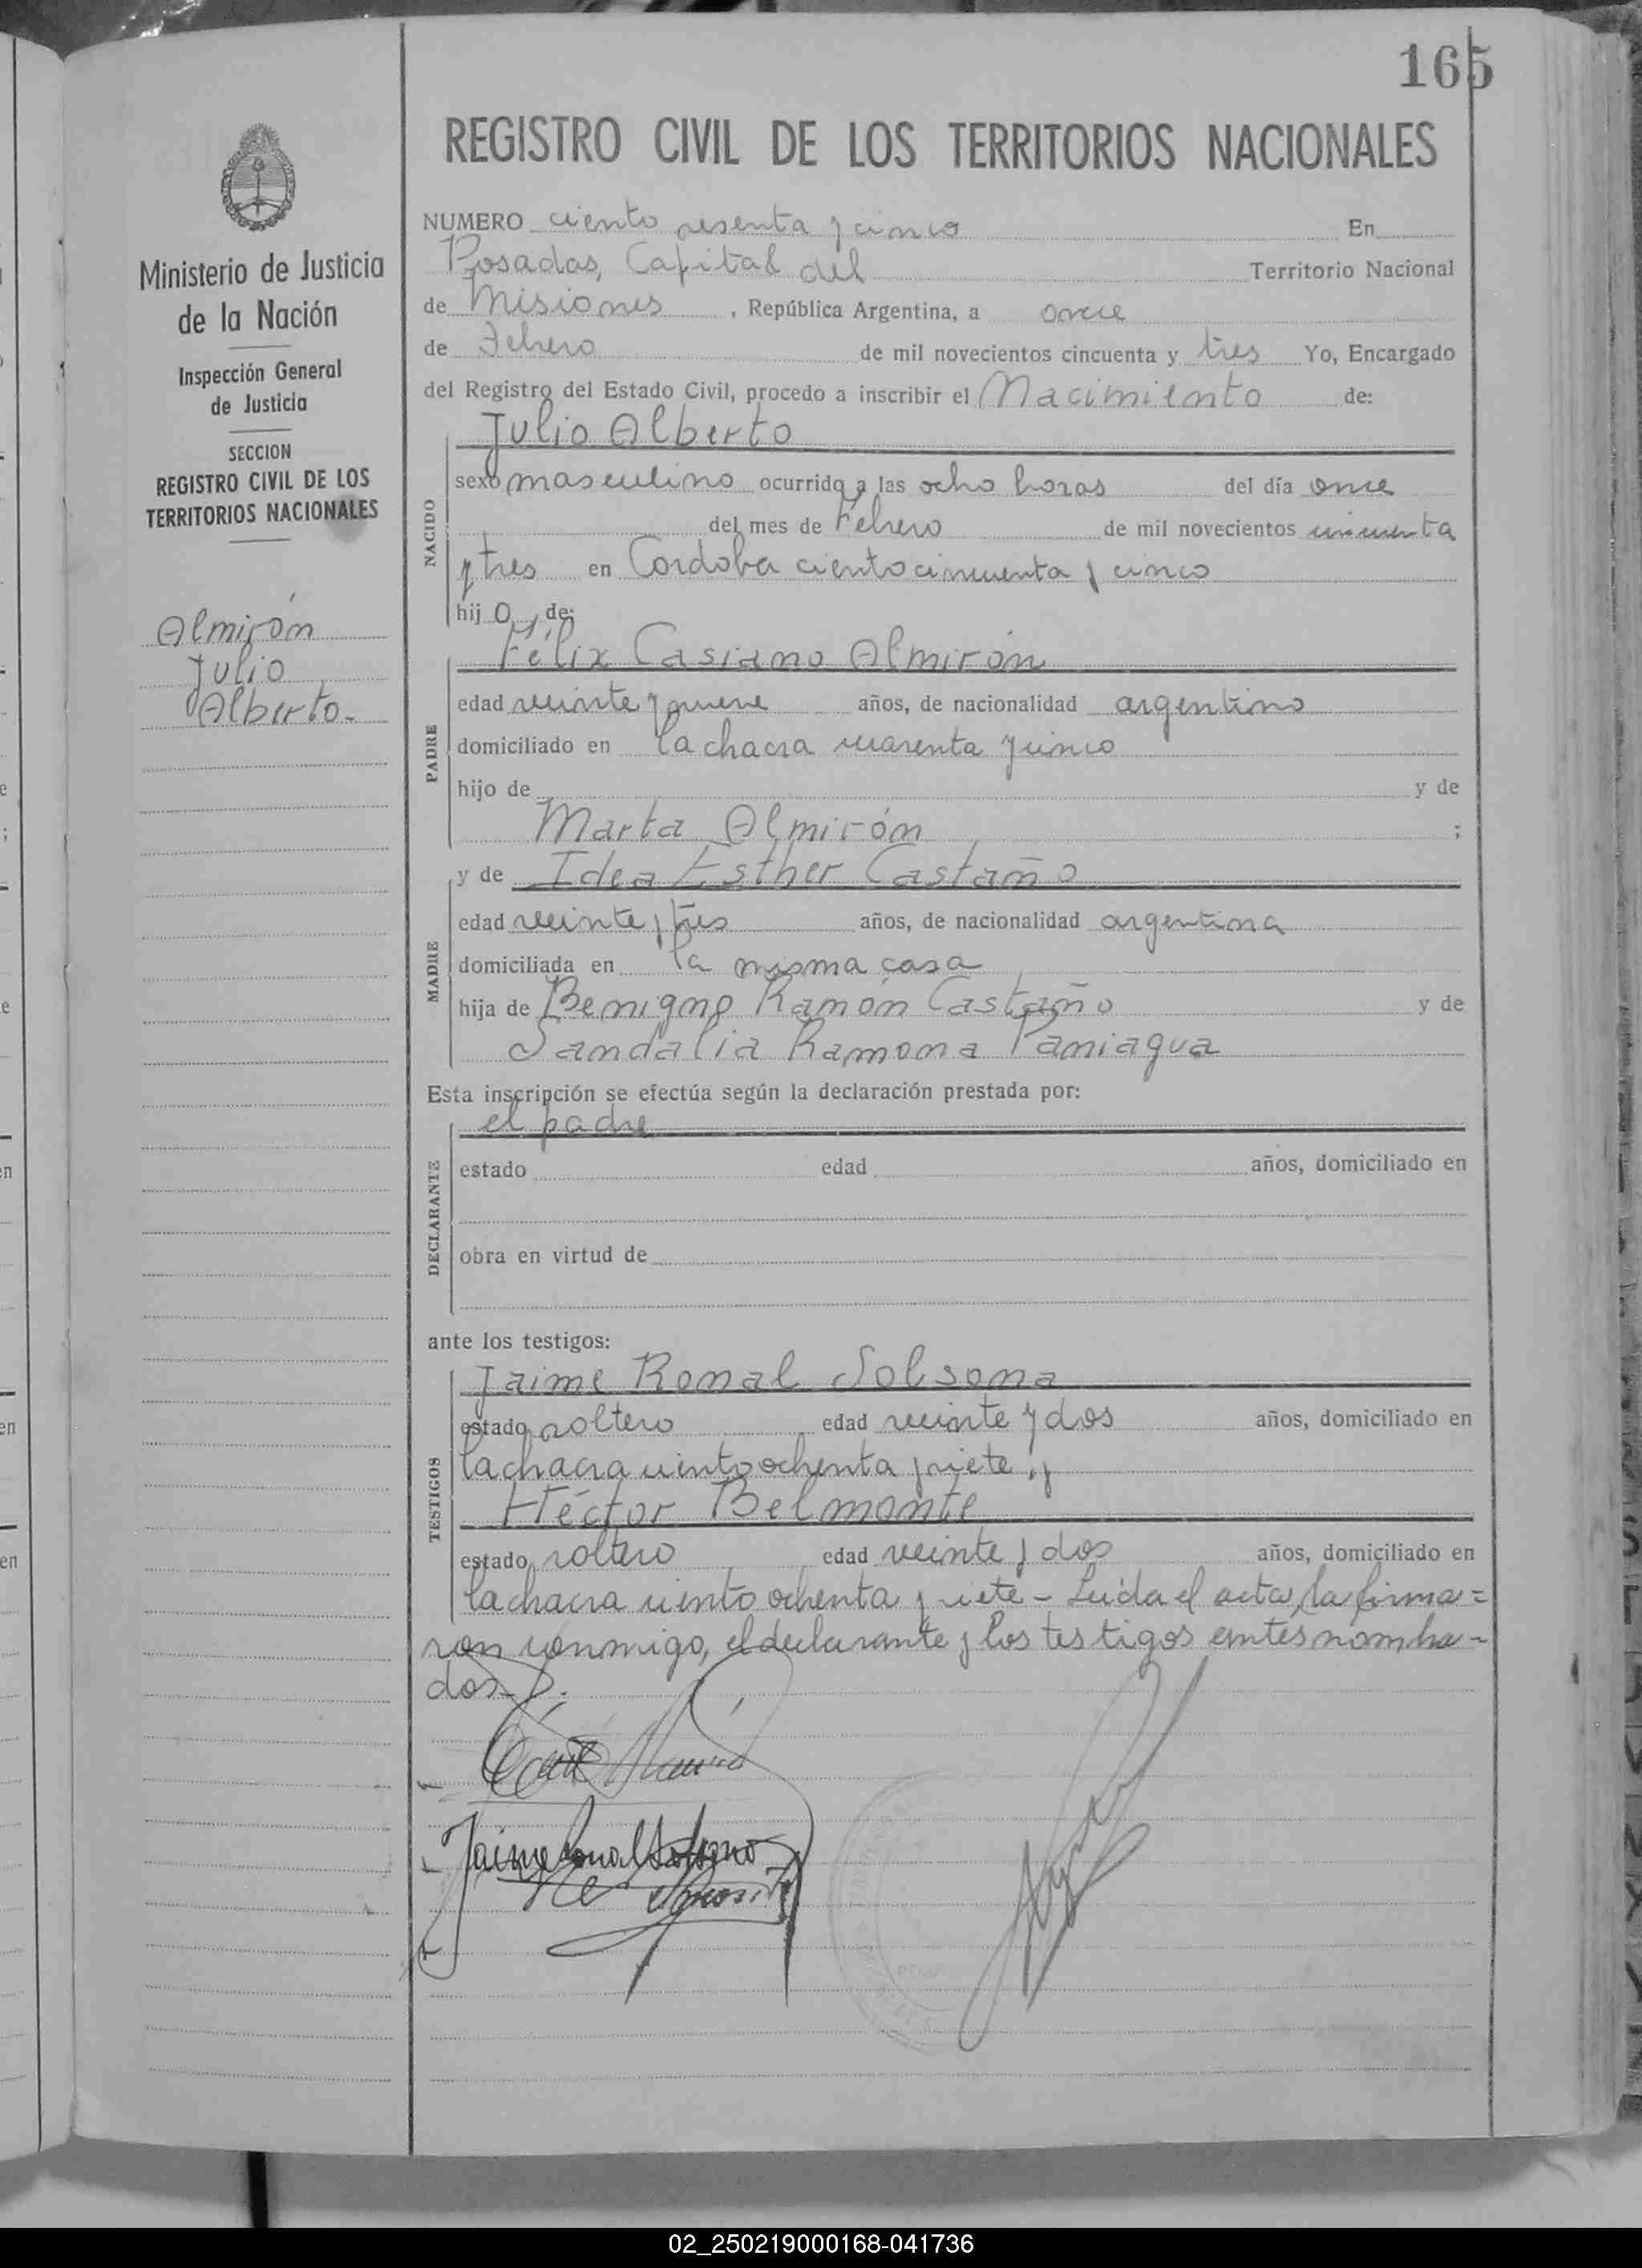 165
REGISTRO CIVIL DE LOS TERRITORIOS NACIONALES
Ministerio de Justicia
de la Nación
Inspección General
de Justicia
SECCION
REGISTRO CIVIL DE LOS
TERRITORIOS NACIONALES
Almirón
Julio
Alberto.-
NUMERO ciento sesenta y cinco En
Posadas, Capital del Territorio Nacional
de Misiones, República Argentina, a once
de Febrero de mil novecientos cincuenta y tres Yo, Encargado
del Registro del Estado Civil, procedo a inscribir el Nacimiento de:
Julio Alberto
NACIDO
sexo masculino ocurrido a las ocho horas del día once
del mes de Febrero de mil novecientos cincuenta
y tres en Cordoba ciento cincuenta y cinco
hijo, de:
Félix Casiano Almirón
PADRE
edad veinte y nueve años, de nacionalidad argentino
domiciliado en la chacra cuarenta y cinco
hijo de y de
Marta Almirón ;
y de Idea Esther Castaño
MADRE
edad veinte y tres años, de nacionalidad argentina
domiciliada en la misma casa
hija de Benigno Ramón Castaño y de
Sandalia Ramona Paniagua
Esta inscripción se efectúa según la declaración prestada por:
el padre
DECLARANTE
estado edad años, domiciliado en
obra en virtud de
ante los testigos:
Jaime Ronal Solsona
TESTIGOS
estado soltero edad veinte y dos años, domiciliado en
la chacra ciento ochenta y siete, y
Héctor Belmonte
estado soltero edad veinte y dos años, domiciliado en
la chacra ciento ochenta y siete - Leída el acta, la firma=
ron conmigo, el declarante y los testigos antes nombra-
dos.-
Jaime Ronal Solsona
02_250219000168-041736